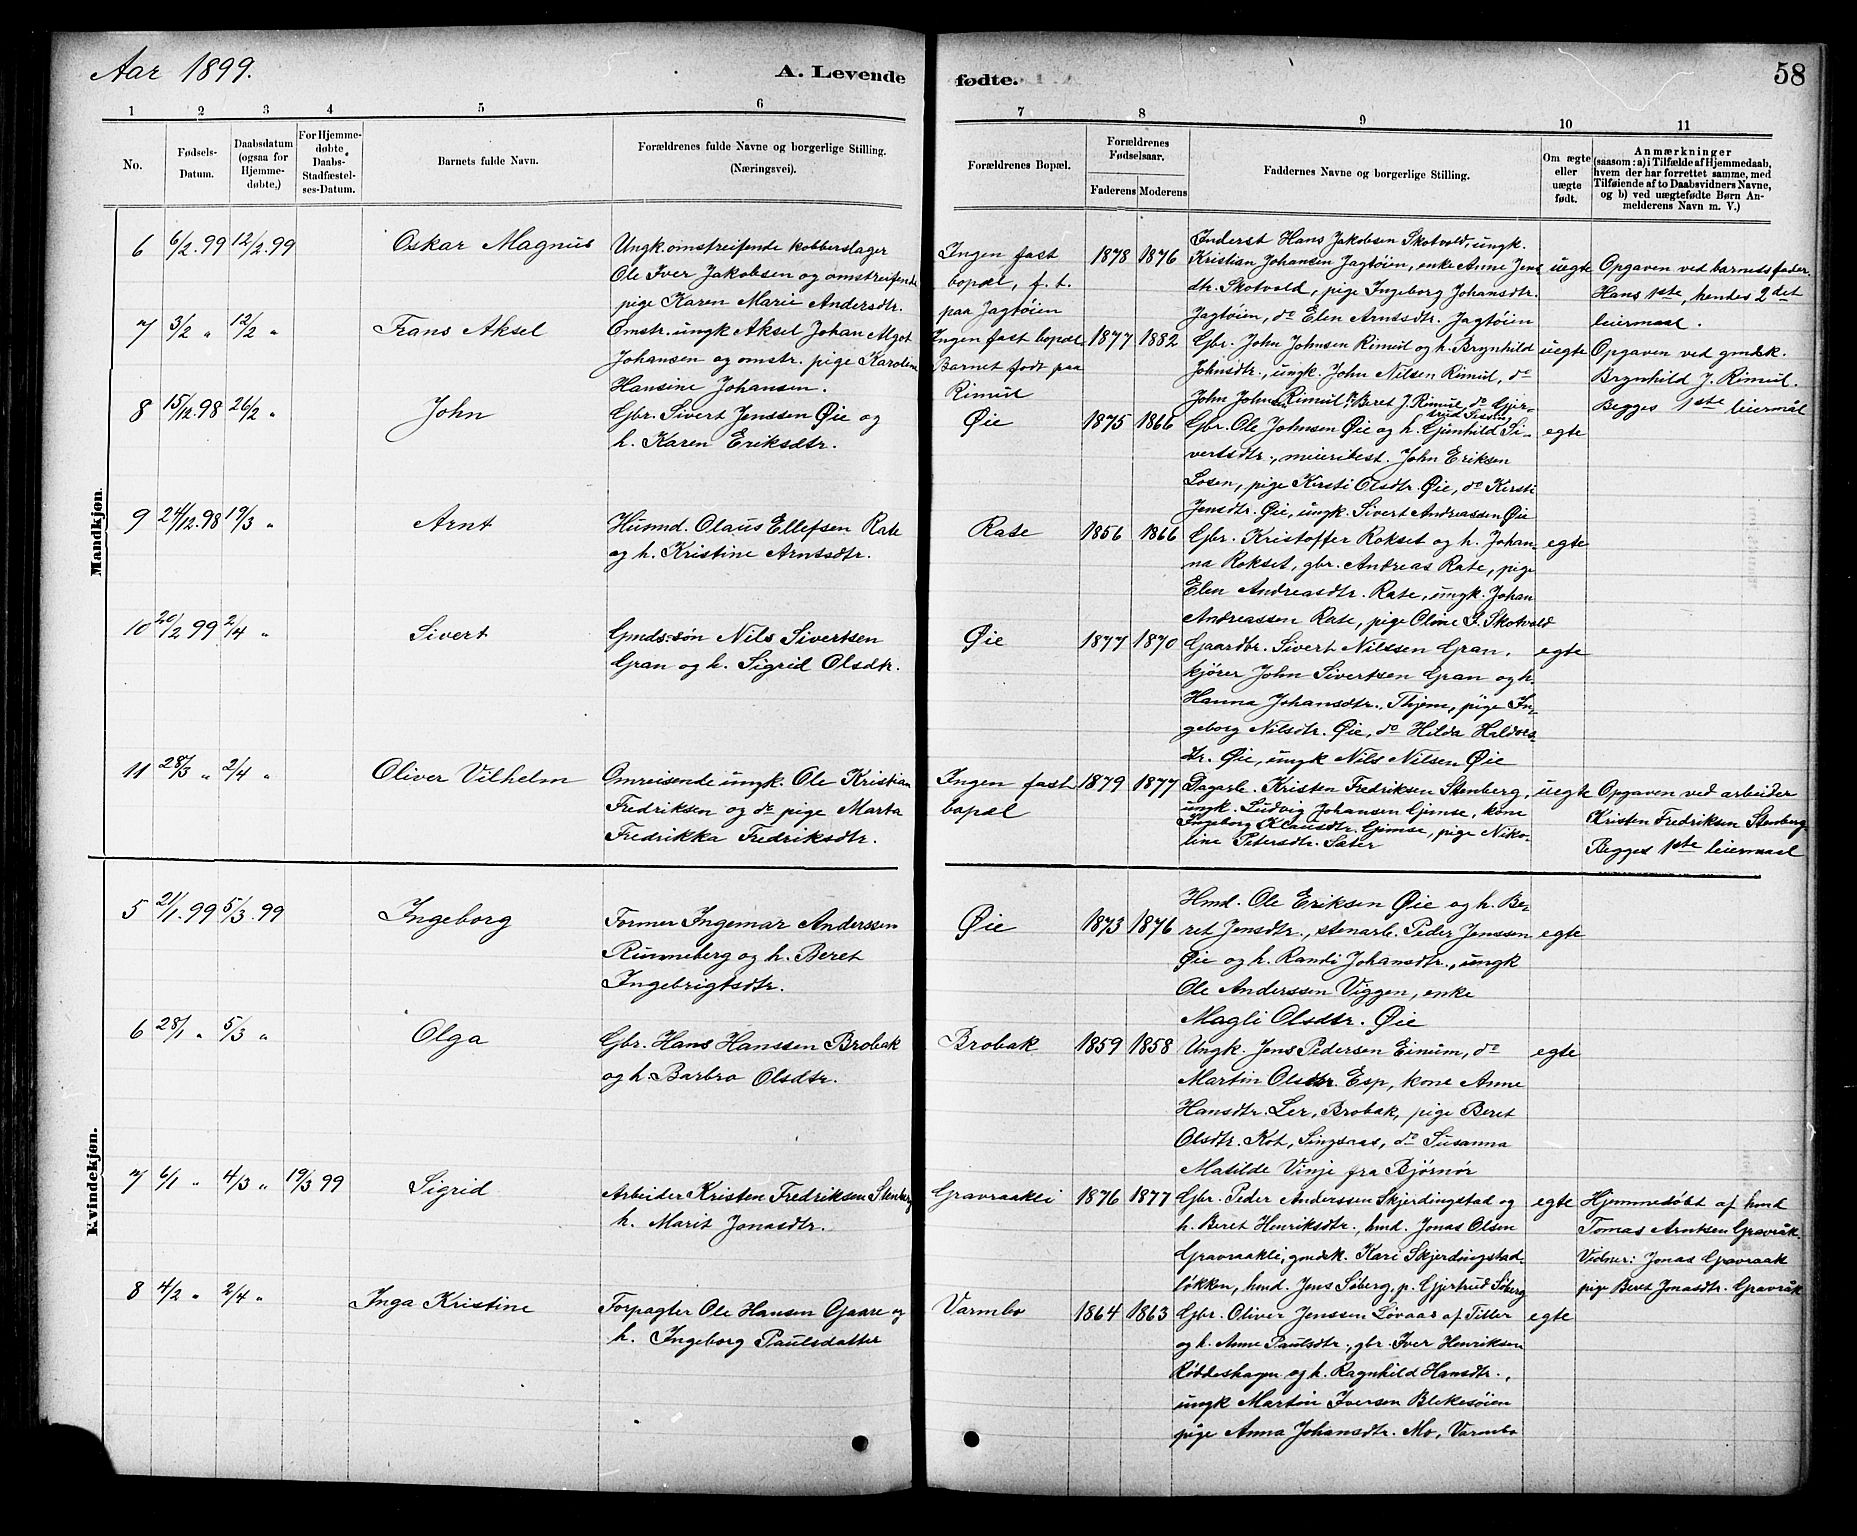 Aar 1899.
A. Levende
fødte.
58
1 2 3 4 5 6
7 8 9 10 11
No.
Fødsels-
Datum.
Daabsdatum
(ogsaa for
Hjemme-
døbte.)
For Hjemme-
døbte
Daabs-
Stadfæstel-
ses-Datum.
Barnets fulde Navn.
Forældrenes fulde Navne og borgerlige Stilling.
(Næringsvei).
Forældrenes Bopæl.
Forældrenes
Fødselsaar.
Faderens Moderens
Faddernes Navne og borgerlige Stilling.
Om ægte
eller
uægte
født.
Anmærkninger
(saasom: a) i Tilfælde af Hjemmedaab,
hvem der har forrettet samme, med
Tilføiende af to Daabsvidners Navne,
og b) ved uægtefødte Børn An-
melderens Navn m. V.)
Mandkjøn.
6 6/2.99 12/2.99 Oskar Magnus
Ungk. omstreifende kobberslager
Ole Iver Jakobsen og omstreifende
pige Karen Marie Andersdtr.
Ingen fast
bopæl, f. t.
paa Jagtøien
1878 1876
Inderst Hans Jakobsen Skotvold, ungk.
Kristian Johansen Jagtøien, enke Anne Jens
dtr. Skotvold, pige Ingeborg Johansdtr.
Jagtøien, do Elen Arntsdtr. Jagtøien
uegte
Opgaven ved barnets fader
Hans 1ste, hendes 2det
leiermaal.
7 3/2 " 12/2 " Frans Aksel
Omstr. ungk Aksel Johan Algot
Johansen og omstr. pige Karoline
Hansine Johansen.
Ingen fast bopæl
Barnet født paa
Rimul
1877 1882
Gbr. John Johnsen Rimul og h. Brynhild
Johnsdtr., ungk. John Nilsen Rimul, do
John Johnsen Rimul, p. Beret J. Rimul, do Gjer-
trud Tesdig
uegte
Opgaven ved gmdsk.
Brynhild J. Rimul.
Begges 1ste leiermål
8 15/12.98 26/2 " John
Gbr. Sivert Jenssen Øie og
h. Karen Eriksdtr.
Øie
1875 1866
Gbr. Ole Johnsen Øie og h. Gunhild Si-
vertsdtr., meieribest. John Eriksen
Losen, pige Kirsti Olsdtr. Øie, do Kirsti
Jensdtr. Øie, ungk. Sivert Andreassen Øie
egte
9 24/12.98 19/3 " Arnt
Husmd. Olaus Ellefsen Rate
og h. Kristine Arntsdtr.
Rate
1856 1866
Gbr. Kristoffer Rokset og h. Johan-
na Rokset, gbr. Andreas Rate, pige
Elen Andreasdtr. Rate, ungk. Johan
Andreassen Rate, pige Oline J. Skotvold
egte
10 20/2 99 2/4 " Sivert
Gmds-søn Nils Sivertsen
Gran og h. Sigrid Olsdtr.
Øie
1877 1870
Gaardbr. Sivert Nilssen Gran,
kjører John Sivertsen Gran og h.
Hanna Johansdtr., Thjem, pige In-
geborg Nilsdtr. Øie, do Hilda Haldors-
dtr. Øie, ungk Nils Nilsen Øie
egte
11 28/3 " 2/4 " Oliver Vilhelm
Omreisende ungk. Ole Kristian
Fredriksen og do pige Marta
Fredrikka Fredriksdtr.
Ingen fast
bopæl
1879 1877
Dagarb. Kristen Fredriksen Stenberg,
ungk. Ludvig Johansen Gimse, kone
Ingeborg Klausdtr. Gimse, pige Niko-
line Petersdtr. Sæter
uegte
Opgaven ved arbeider
Kristen Fredriksen Stenberg
Begges 1ste leiermaal
Kvindekjøn.
5 21/1.99 5/3.99 Ingeborg
Former Ingemar Anderssen
Runneberg og h. Beret
Ingebrigtsdtr.
Øie
1873 1876
Hmd. Ole Eriksen Øie og h. Be-
ret Jensdtr., stenarb. Peder Jenssen
Øie og h. Randi Johansdtr., ungk
Ole Anderssen Viggen, enke
Magli Olsdtr. Øie
egte
6 28/1 " 5/3 " Olga
Gbr. Hans Hanssen Brobak
og h. Barbro Olsdtr.
Brobak
1859 1858
Ungk. Jens Pedersen Einum, do
Martin Olsdtr. Esp, kone Anne
Hansdtr. Ler, Brobak, pige Beret
Olsdtr. Kot, Singsaas, do Susanna
Matilde Vinje fra Bjørnør
egte
7 6/1 " 4/3 " 19/3 99 Sigrid
Arbeider Kristen Fredriksen Stenberg
h. Marit Jonasdtr.
Gravraakli
1876 1877
Gbr. Peder Anderssen Skjerdingstad og
h. Beret Henriksdtr., hmd. Jonas Olsen
Gravraakli, gmdsk. Kari Skjerdingstad-
løkken, hmd. Jens Søberg, p. Gjertrud Søberg
egte
Hjemmedøbt af hmd
Tomas Arntsen Gravråk
Vidner: Jonas Gravraak
pige Beret Jonasdtr. Gravråk
8 4/2 " 2/4 " Inga Kristine
Forpagter Ole Hansen Gaare og
h. Ingeborg Paulsdatter
Varmbo
1864 1863
Gbr. Oliver Jenssen Løvaas af Tiller
og h. Anne Paulsdtr., gbr. Iver Henriksen
Røddeshagen og h. Ragnhild Hansdtr.,
ungk Martin Iversen Blekesøien
pige Anna Johansdtr. Mo, Varmbo
egte